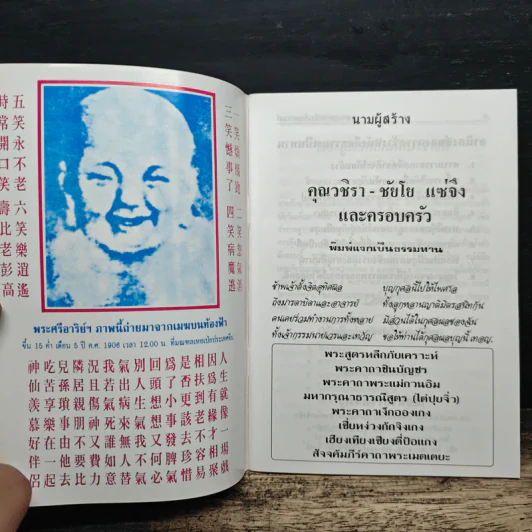 一笑煩惱跑
二笑怨氣消
三笑憾事了
四笑病魔逃
五笑永不老
六笑樂逍遙
時常開口笑
壽比老彭高
พระศรีอาริย์ฯ ภาพนี้ถ่ายมาจากเมฆบนท้องฟ้า
ขึ้น 15 ค่ำ เดือน 5 ปี ค.ศ. 1906 เวลา 12.00 น.
人生就像一場戲
因爲有緣才相聚
相扶到老不容易
是否更該去珍惜
爲了小事發脾氣
回頭想想又何必
別人生氣我不氣
氣出病來無人替
我若氣死誰如意
況且傷神又費力
鄰居親朋不要比
兒孫瑣事由他去
吃苦享樂在一起
神仙羨慕好伴侶
นามผู้สร้าง
คุณวชิรา - ชัยโย แซ่จึง
และครอบครัว
พิมพ์แจกเป็นธรรมทาน
ข้าพเจ้าตั้งจิตอุทิศผล บุญกุศลนี้ไปให้ไพศาล
ถึงมารดาบิดาและอาจารย์ ทั้งลูกหลานญาติมิตรสนิทกัน
คนเคยร่วมทำงานการทั้งหลาย มีส่วนได้ในกุศลผลของฉัน
ทั้งเจ้ากรรมนายเวรและเทวัญ ขอให้ท่านได้กุศลผลบุญนี้ เทอญ.
พระสูตรหลีกภัยเคราะห์
พระคาถาชินบัญชร
พระคาถาพระแม่กวนอิม
มหากรุณาธารณีสูตร (ไต่ปุยจิ่ว)
พระคาถาเจ็กฮองเกง
เซี่ยหง่วงกักจิงเกง
เฮียงเทียงเซียงตี่ป้อแกง
สัจจคัมภีร์คาถาพระเมตเตยยะ